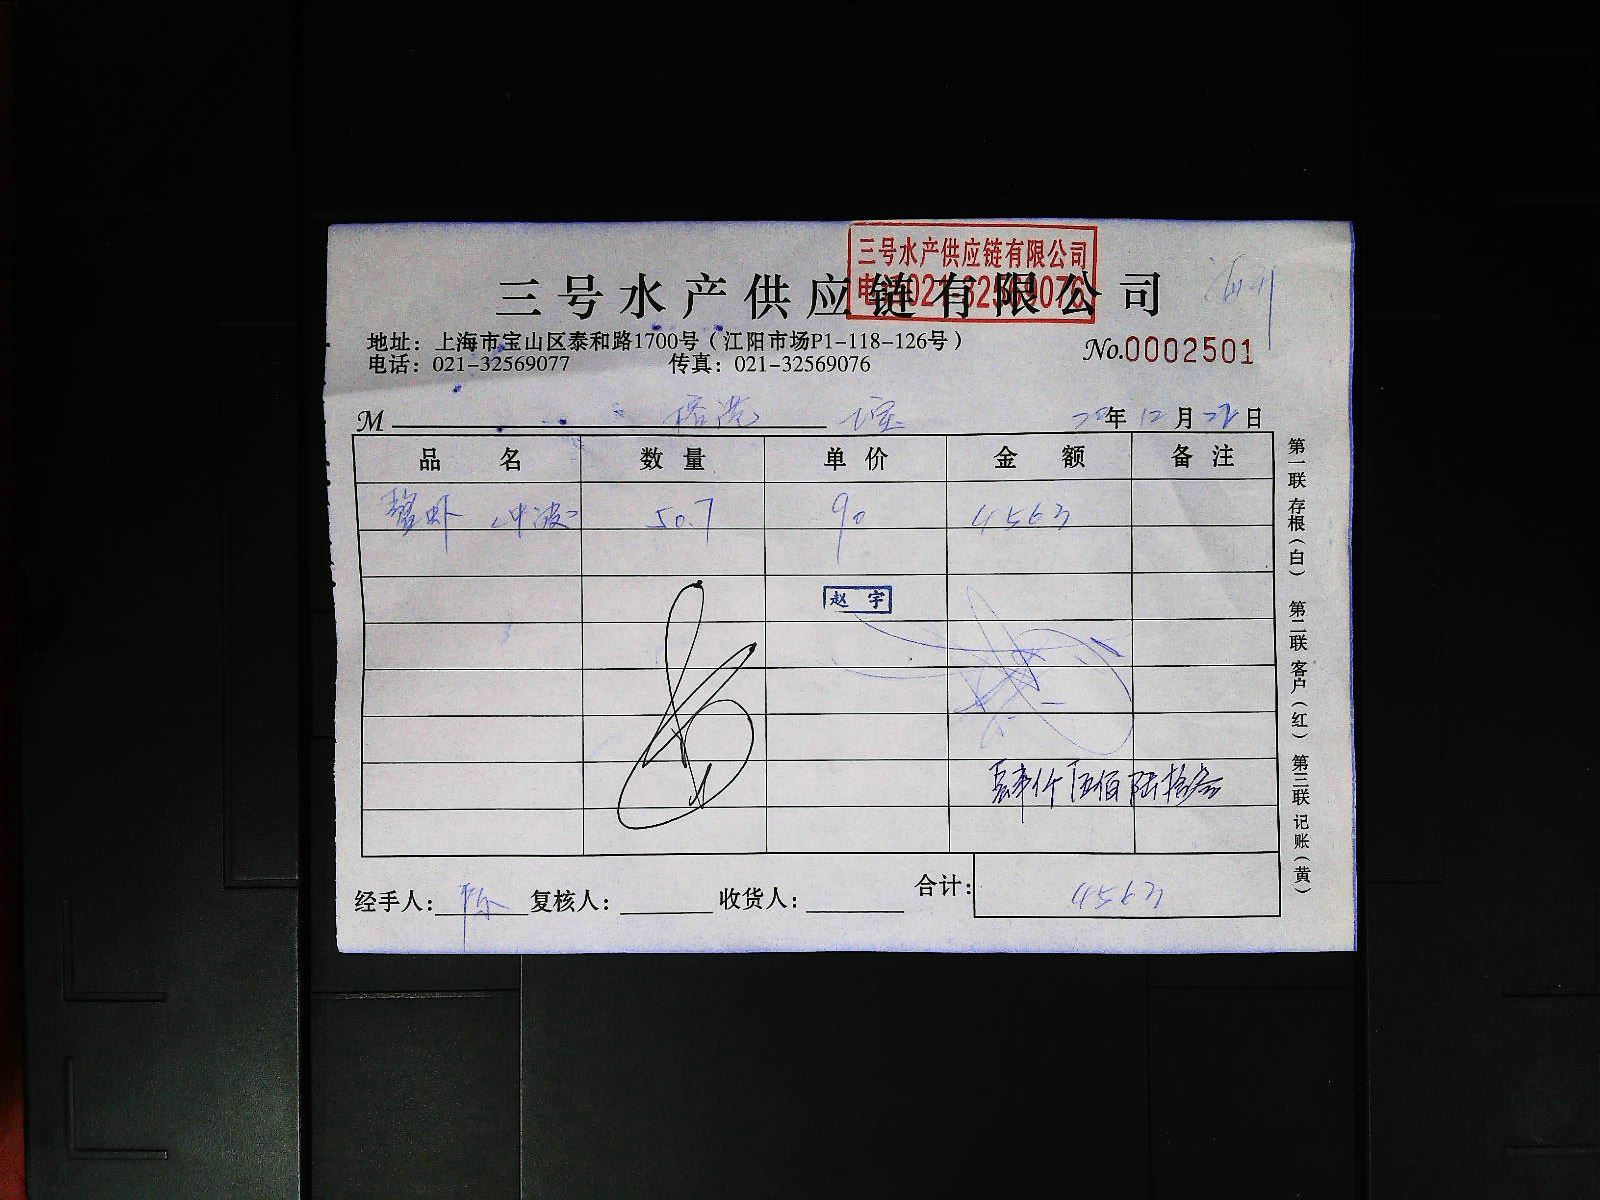 三号水产供应链有限公司
电话021-32569076
三号水产供应链有限公司
地址：上海市宝山区泰和路1700号（江阳市场P1-118-126号）
电话：021-32569077 传真：021-32569076
No.0002501
M 年 12 月 日
品 名 数 量 单 价 金 额 备 注
50.7 90 4563
赵 宇
肆仟伍佰陆拾叁
经手人：陈 复核人： 收货人： 合计：4563
第一联 存根（白） 第二联 客户（红） 第三联 记账（黄）